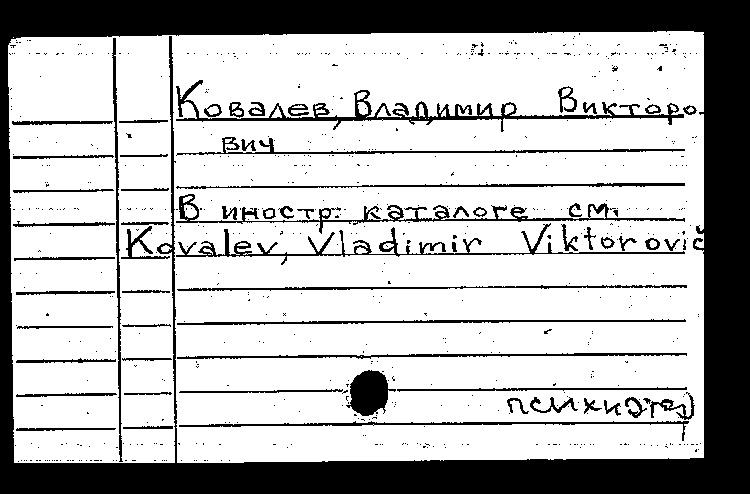 Ковалев, Владимир Викторо-
вич
В иностр. каталоге см.
Kovalev, Vladimir Viktorovič